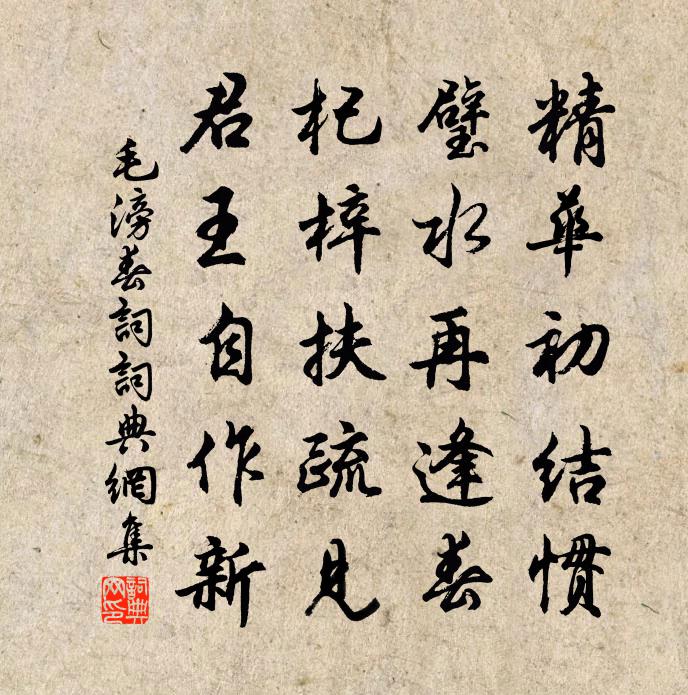 精華初结惯
璧水再逢春
杞梓扶疏見
君王自作新
毛滂春詞詞典網集
詞典网印